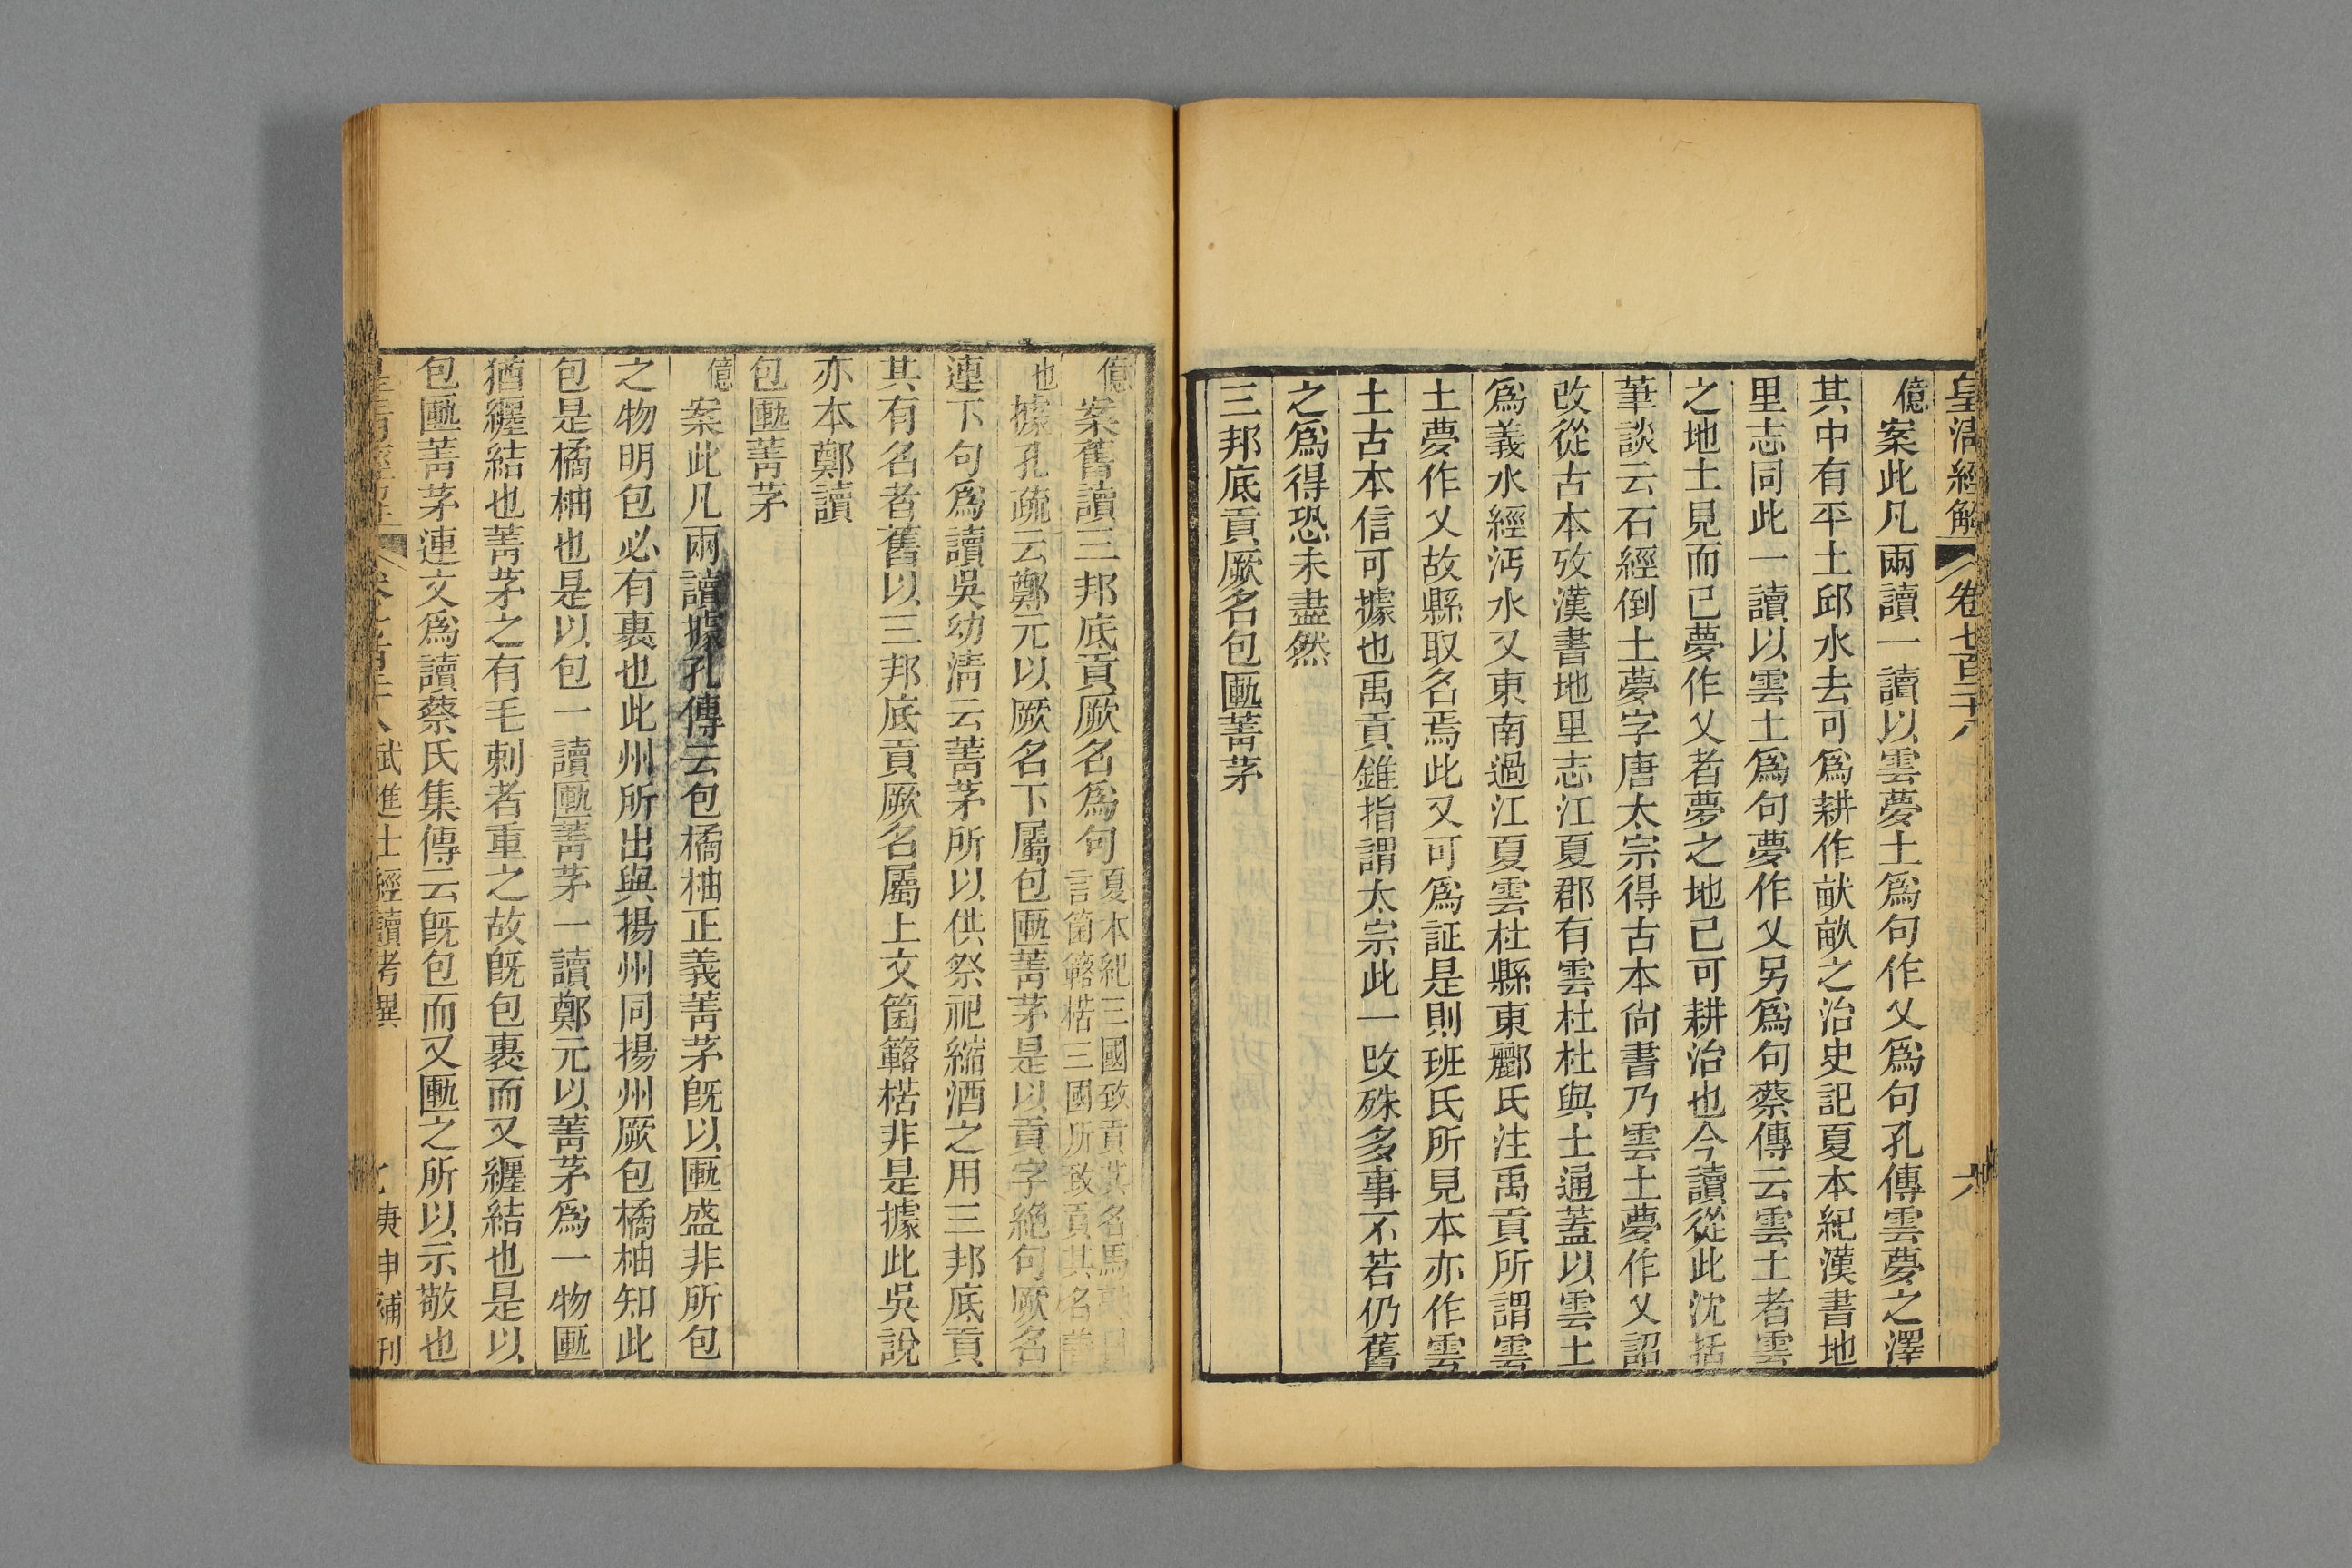 皇清經解 卷七百二十八 六
億案此凡兩讀一讀以雲夢土爲句作乂爲句孔傳雲夢之澤
其中有平土邱水去可爲耕作畎畝之治史記夏本紀漢書地
里志同此一讀以雲土爲句夢作乂另爲句蔡傳云雲土者雲
之地土見而已夢作乂者夢之地已可耕治也今讀從此沈括
筆談云石經倒土夢字唐太宗得古本尙書乃雲土夢作乂詔
改從古本攷漢書地里志江夏郡有雲杜杜與土通蓋以雲土
爲義水經沔水又東南過江夏雲杜縣東酈氏注禹貢所謂雲
土夢作乂故縣取名焉此又可爲証是則班氏所見本亦作雲
土古本信可據也禹貢錐指謂太宗此一改殊多事不若仍舊
之爲得恐未盡然
三邦底貢厥名包匭菁茅
億案舊讀三邦底貢厥名爲句夏本紀三國致貢其名馬言箘簵楛三國所致貢其名
也據孔疏云鄭元以厥名下屬包匭菁茅是以貢字絶句厥名
連下句爲讀吳幼淸云菁茅所以供祭祀縮酒之用三邦底貢
其有名者舊以三邦底貢厥名屬上文箘簵楛非是據此吳說
亦本鄭讀
包匭菁茅
億案此凡兩讀據孔傳云包橘柚正義菁茅旣以匭盛非所包
之物明包必有裹也此州所出與揚州同揚州厥包橘柚知此
包是橘柚也是以包一讀匭菁茅一讀鄭元以菁茅爲一物匭
猶纒結也菁茅之有毛刺者重之故旣包裹而又纒結也是以
包匭菁茅連文爲讀蔡氏集傳云旣包而又匭之所以示敬也
武進士經讀考異 庚申補刊